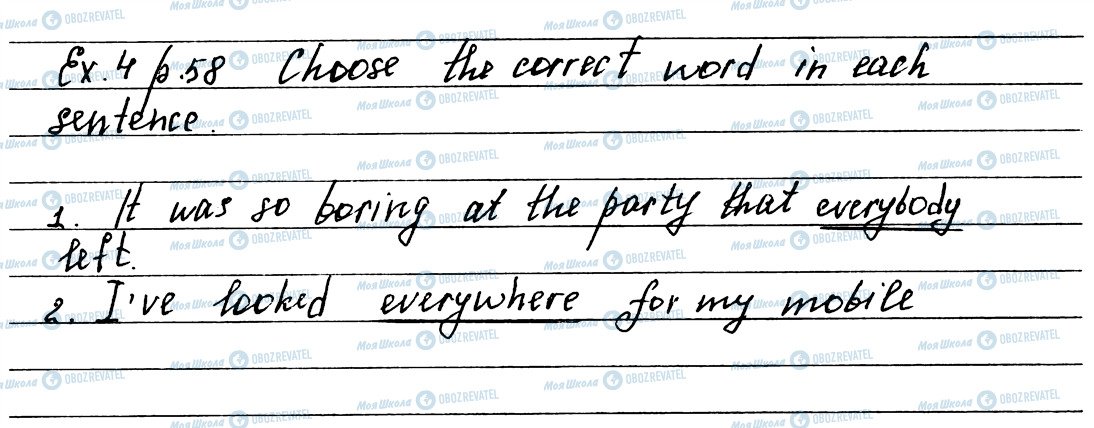 Ex. 4 p. 58 Choose the correct word in each
sentence.
1. It was so boring at the party that everybody
left.
2. I've looked everywhere for my mobile